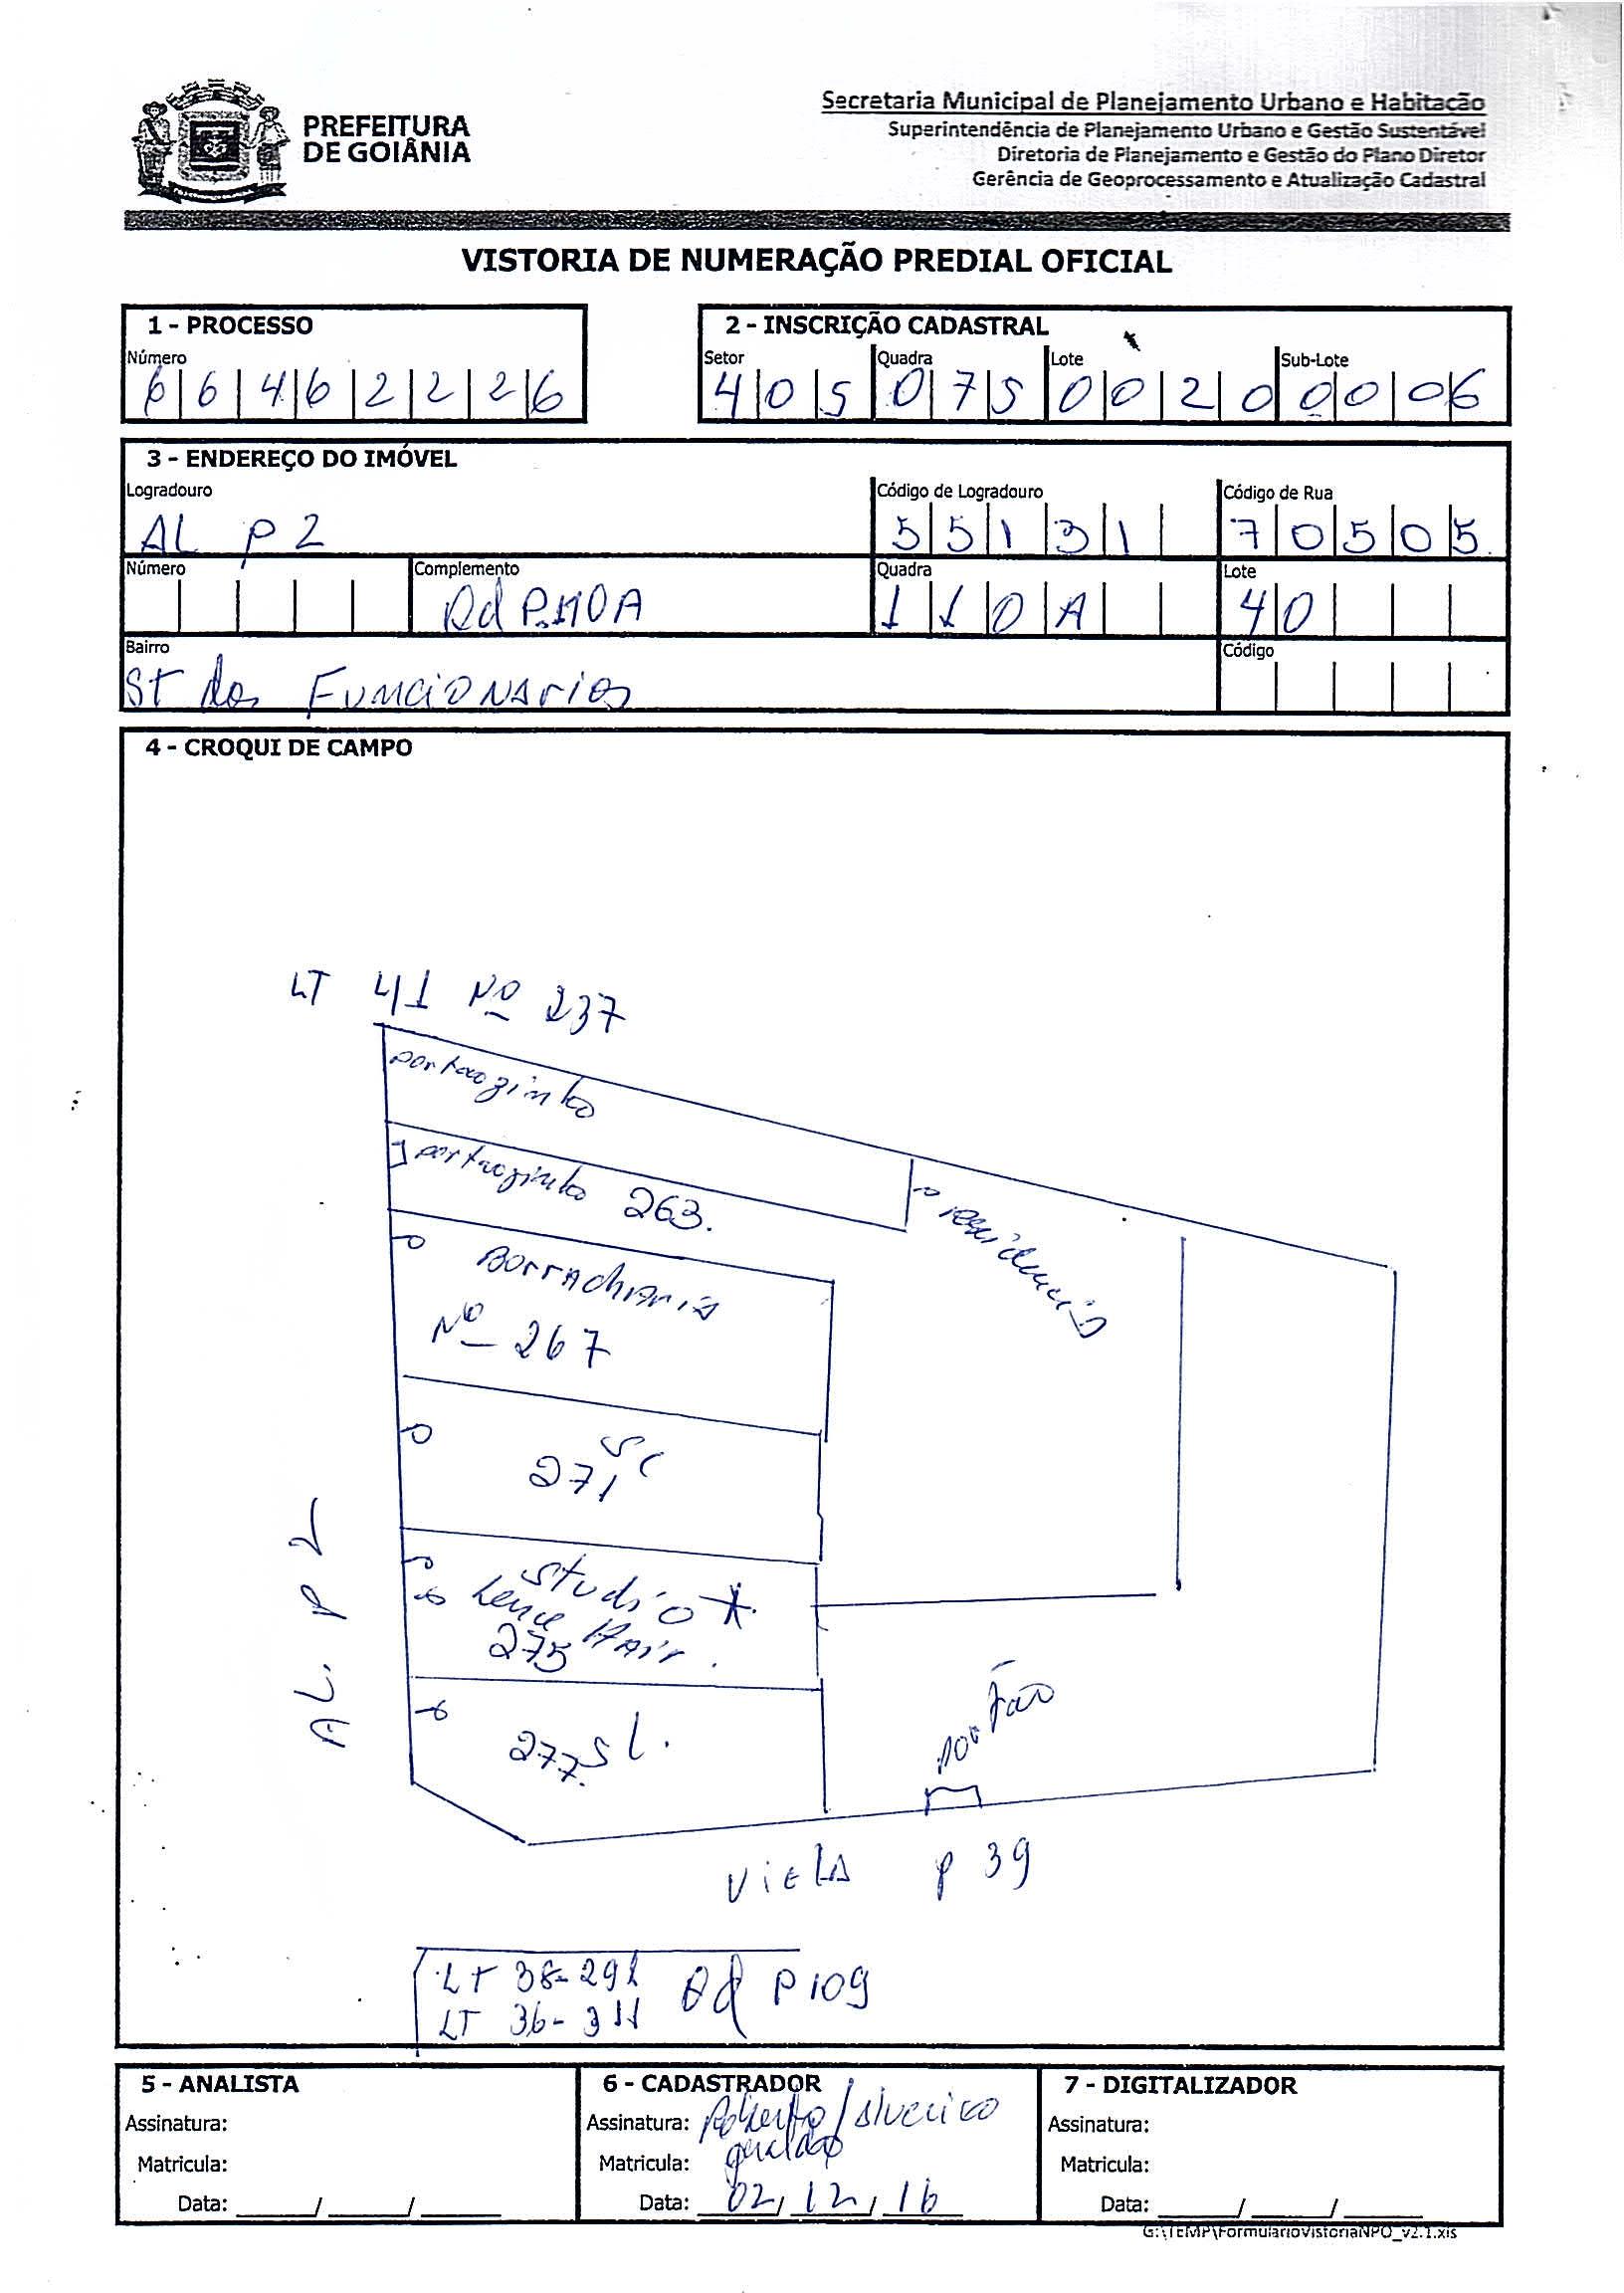 PREFEITURA
DE GOIÂNIA
Secretaria Municipal de Planejamento Urbano e Habitação
Superintendência de Planejamento Urbano e Gestão Sustentável
Diretoria de Planejamento e Gestão do Plano Diretor
Gerência de Geoprocessamento e Atualização Cadastral
VISTORIA DE NUMERAÇÃO PREDIAL OFICIAL
1 - PROCESSO
Número
6 6 4 6 2 2 2 6
2 - INSCRIÇÃO CADASTRAL
Setor Quadra Lote Sub-Lote
4 0 5 0 7 5 0 0 2 0 0 0 0 6
3 - ENDEREÇO DO IMÓVEL
Logradouro Código de Logradouro Código de Rua
AL P 2 5 5 1 3 1 7 0 5 0 5
Número Complemento Quadra Lote
Qd P.110A 1 1 0 A 40
Bairro Código
ST dos Funcionarios
4 - CROQUI DE CAMPO
LT 41 Nº 237
portaozinho
portaozinho 263.
residencia
Borracharia
Nº 267
271
Studio
Hair.
275
277 Sl.
AL. P 2
portão
Viela P 39
LT 38-291
LT 36-311
Qd P109
5 - ANALISTA
Assinatura:
Matricula:
Data: ____/____/____
6 - CADASTRADOR
Assinatura: Roberto / Silverico
geraldo
Matricula:
Data: 02/12/16
7 - DIGITALIZADOR
Assinatura:
Matricula:
Data: ____/____/____
G:\TEMP\FormularioVistoriaNPO_v2.1.xls